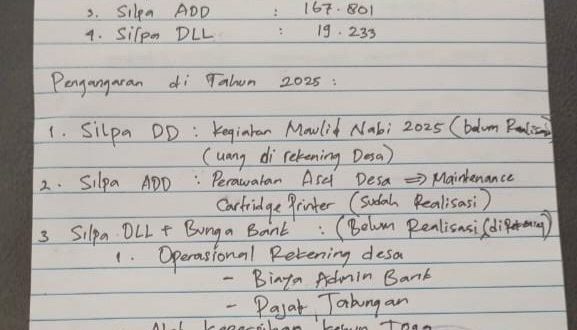 3. Silpa ADD : 167.801
4. Silpa DLL : 19.233
Pengangaran di Tahun 2025 :
1. Silpa DD : Kegiatan Maulid Nabi 2025 (belum Realisasi
(uang di rekening Desa)
2. Silpa ADD : Perawatan Aset Desa ⇒ Maintenance
Cartridge Printer (Sudah Realisasi)
3 Silpa DLL + Bunga Bank : (Belum Realisasi (di Rekening)
1. Operasional Rekening desa
- Biaya Admin Bank
- Pajak Tabungan
Alat Kebersihan Kebun Toga